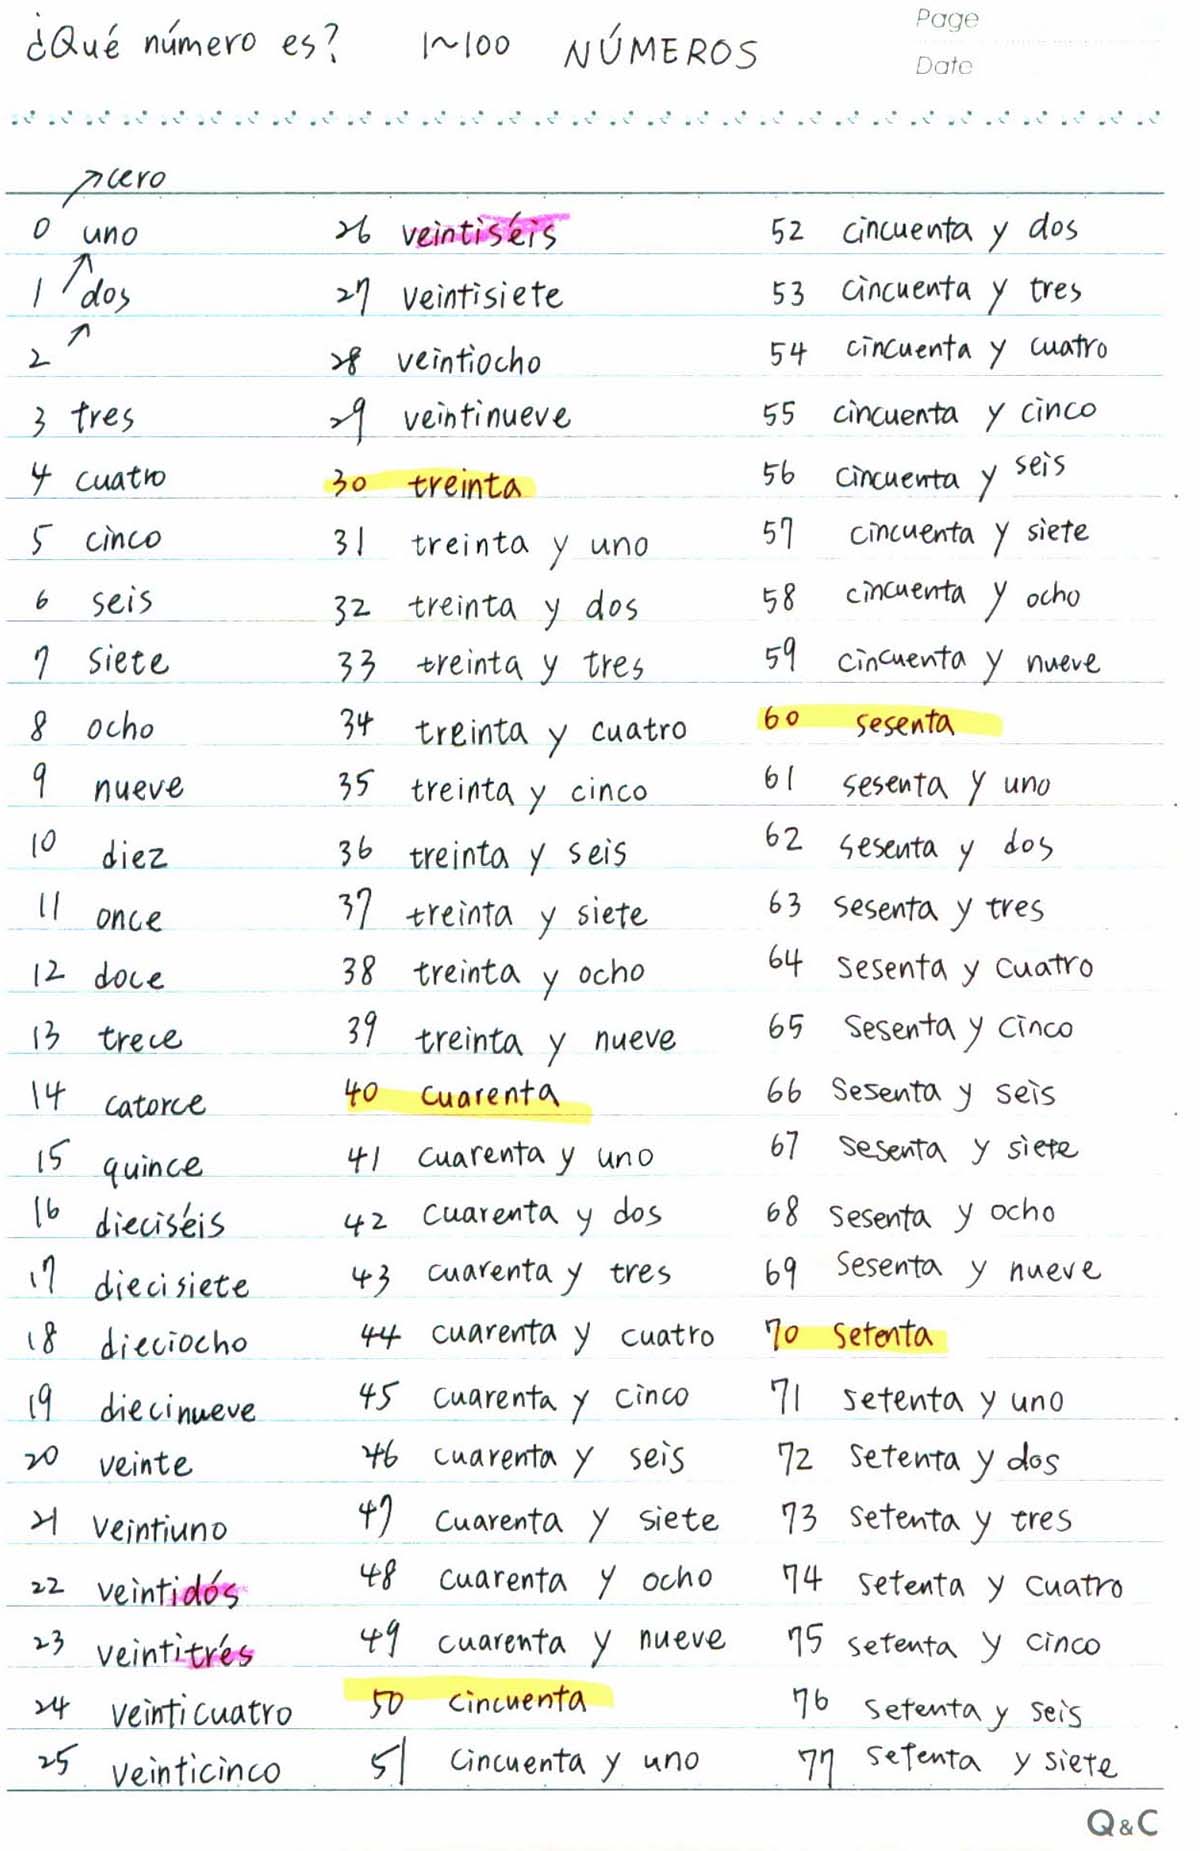 ¿Qué número es? 1~100 NÚMEROS
Page
Date
cero
0 uno
1 dos
2
3 tres
4 cuatro
5 cinco
6 seis
7 siete
8 ocho
9 nueve
10 diez
11 once
12 doce
13 trece
14 catorce
15 quince
16 dieciséis
17 diecisiete
18 dieciocho
19 diecinueve
20 veinte
21 veintiuno
22 veintidós
23 veintitrés
24 veinticuatro
25 veinticinco
26 veintiséis
27 veintisiete
28 veintiocho
29 veintinueve
30 treinta
31 treinta y uno
32 treinta y dos
33 treinta y tres
34 treinta y cuatro
35 treinta y cinco
36 treinta y seis
37 treinta y siete
38 treinta y ocho
39 treinta y nueve
40 cuarenta
41 cuarenta y uno
42 cuarenta y dos
43 cuarenta y tres
44 cuarenta y cuatro
45 cuarenta y cinco
46 cuarenta y seis
47 cuarenta y siete
48 cuarenta y ocho
49 cuarenta y nueve
50 cincuenta
51 cincuenta y uno
52 cincuenta y dos
53 cincuenta y tres
54 cincuenta y cuatro
55 cincuenta y cinco
56 cincuenta y seis
57 cincuenta y siete
58 cincuenta y ocho
59 cincuenta y nueve
60 sesenta
61 sesenta y uno
62 sesenta y dos
63 sesenta y tres
64 sesenta y cuatro
65 sesenta y cinco
66 sesenta y seis
67 sesenta y siete
68 sesenta y ocho
69 sesenta y nueve
70 setenta
71 setenta y uno
72 setenta y dos
73 setenta y tres
74 setenta y cuatro
75 setenta y cinco
76 setenta y seis
77 setenta y siete
Q&C